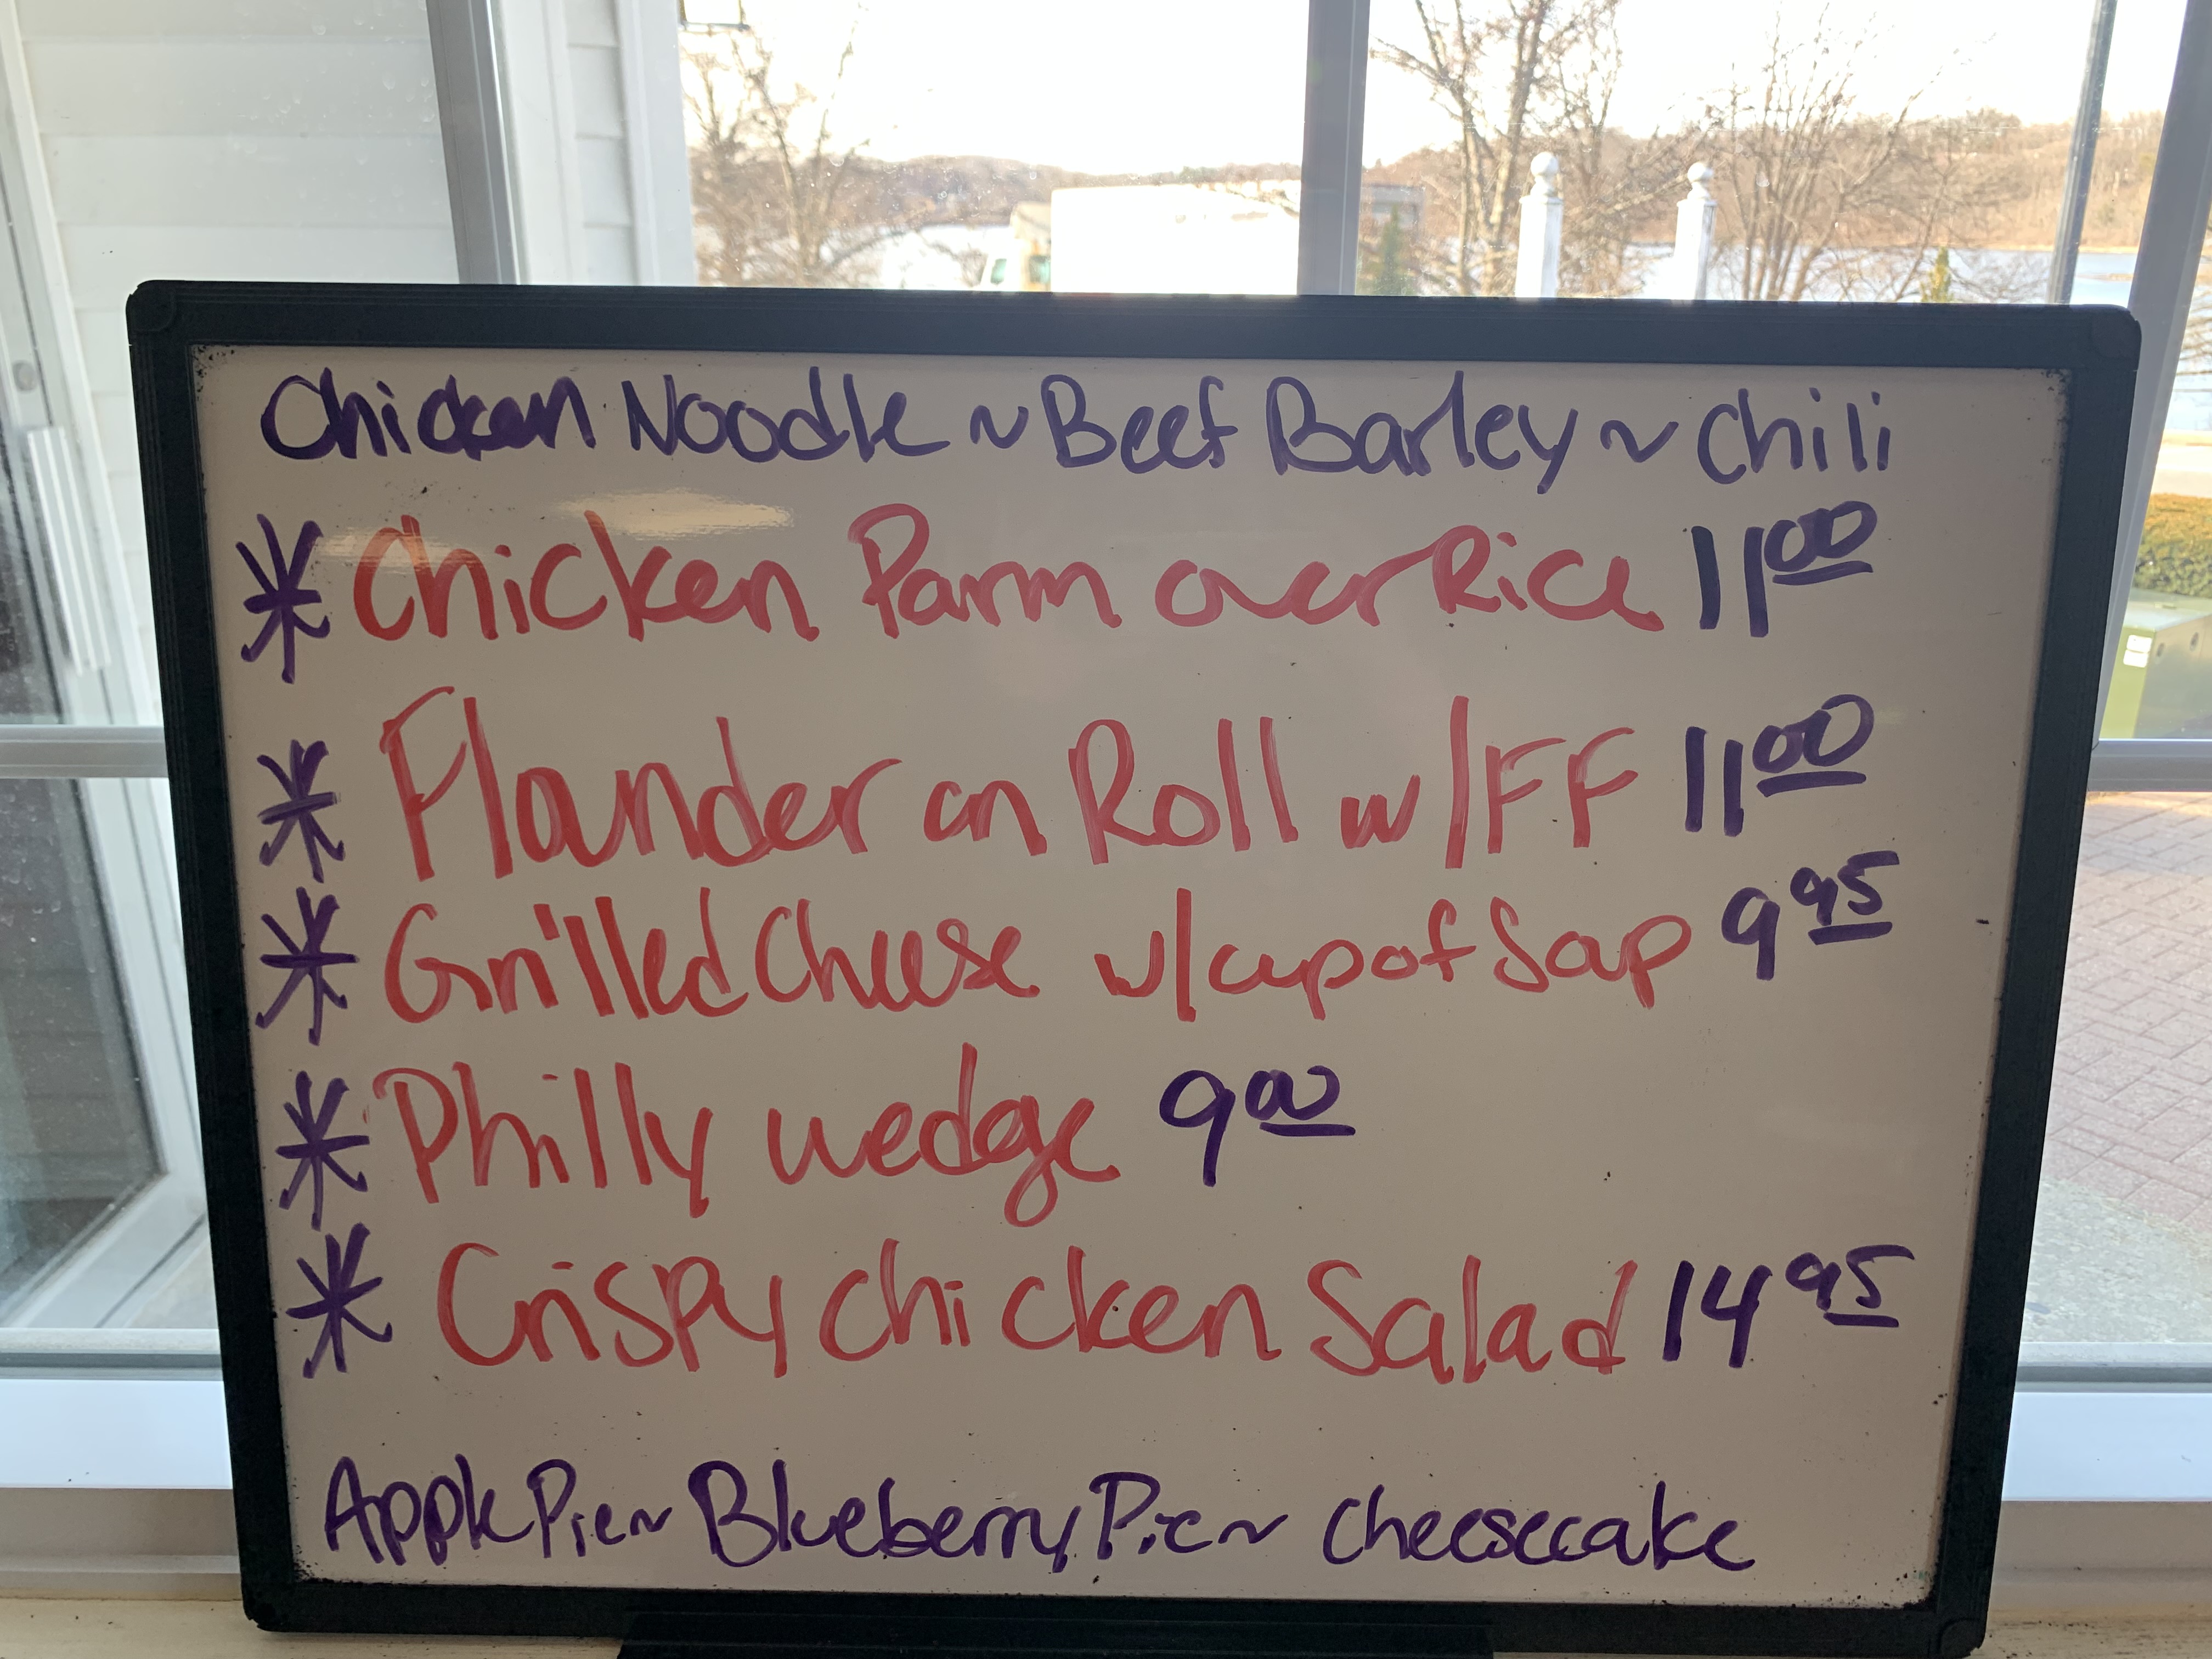 Chicken Noodle ~ Beef Barley ~ Chili
* Chicken Parm over Rice 11.00
* Flounder on Roll w/FF 11.00
* Grilled Cheese w/cup of Soup 9.95
* Philly wedge 9.00
* Crispy chicken Salad 14.95
Apple Pie ~ Blueberry Pie ~ cheesecake